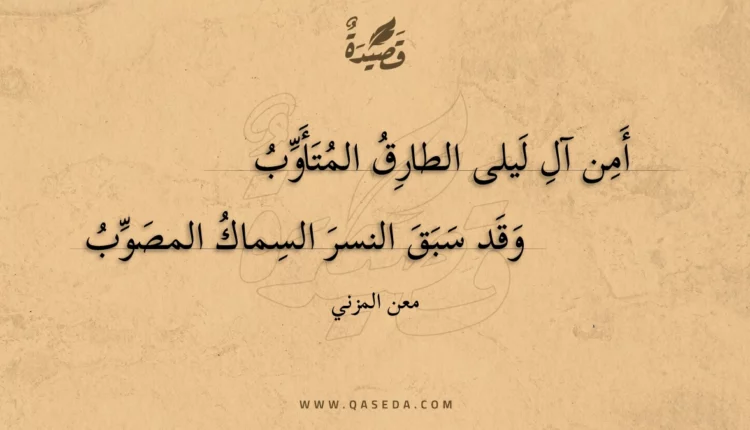 قَصِيْدَةٌ
أَمِن آلِ لَيلى الطارِقُ المُتَأَوِّبُ
وَقَد سَبَقَ النسرَ السِماكُ المصَوِّبُ
معن المزني
WWW.QASEDA.COM